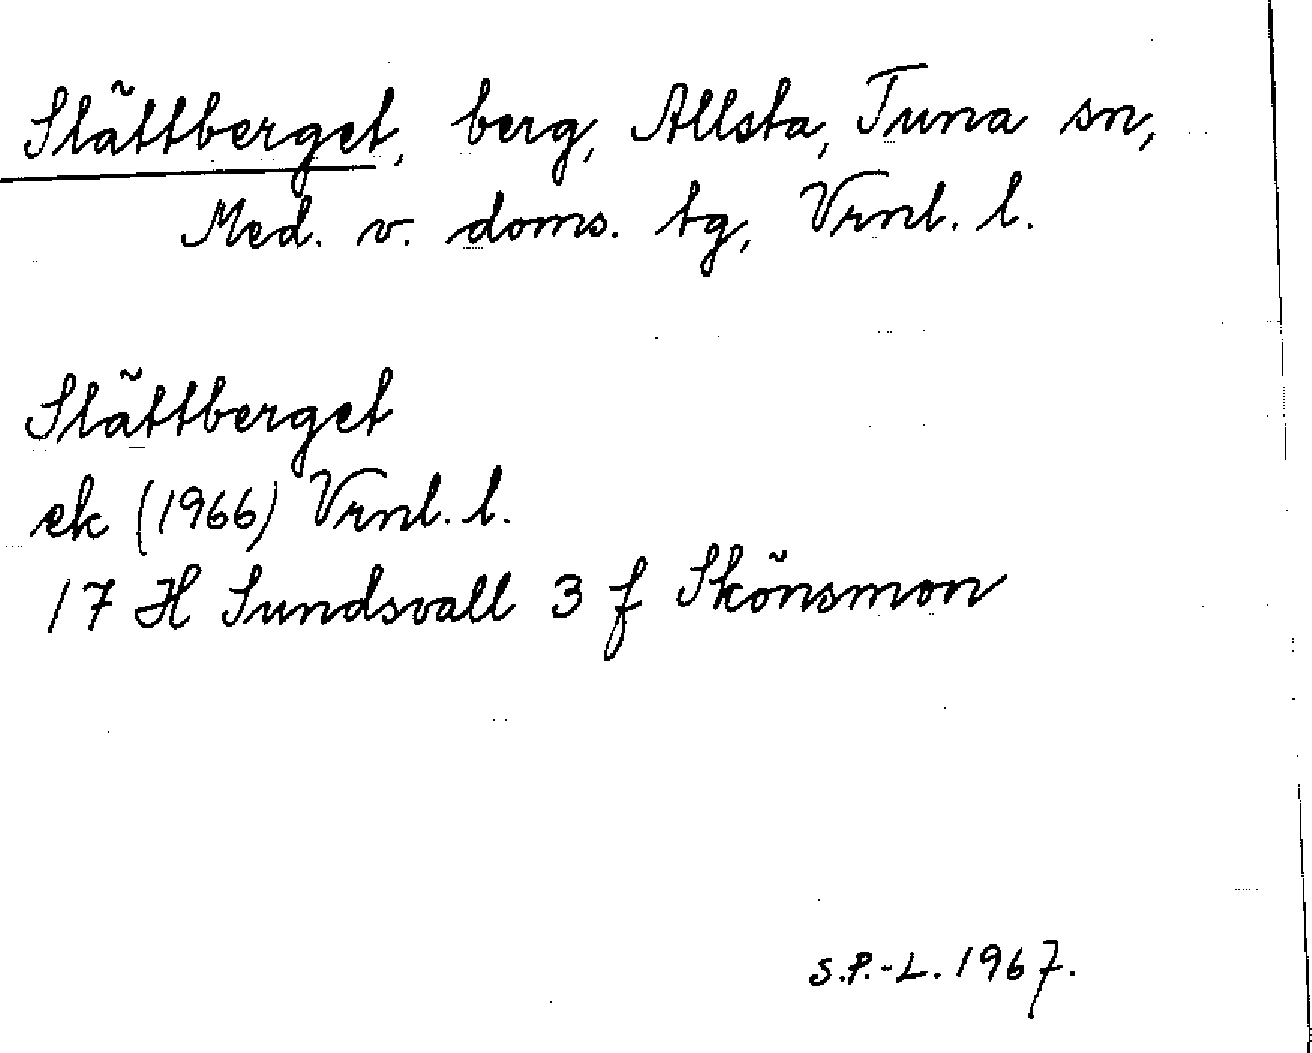 Slättberget, berg, Allsta, Tuna sn,
Med. v. doms. tg, Vrnl. l.
Slättberget
ek (1966) Vrnl. l.
17 H Sundsvall 3 f Skönsmon
S.P.-L. 1967.